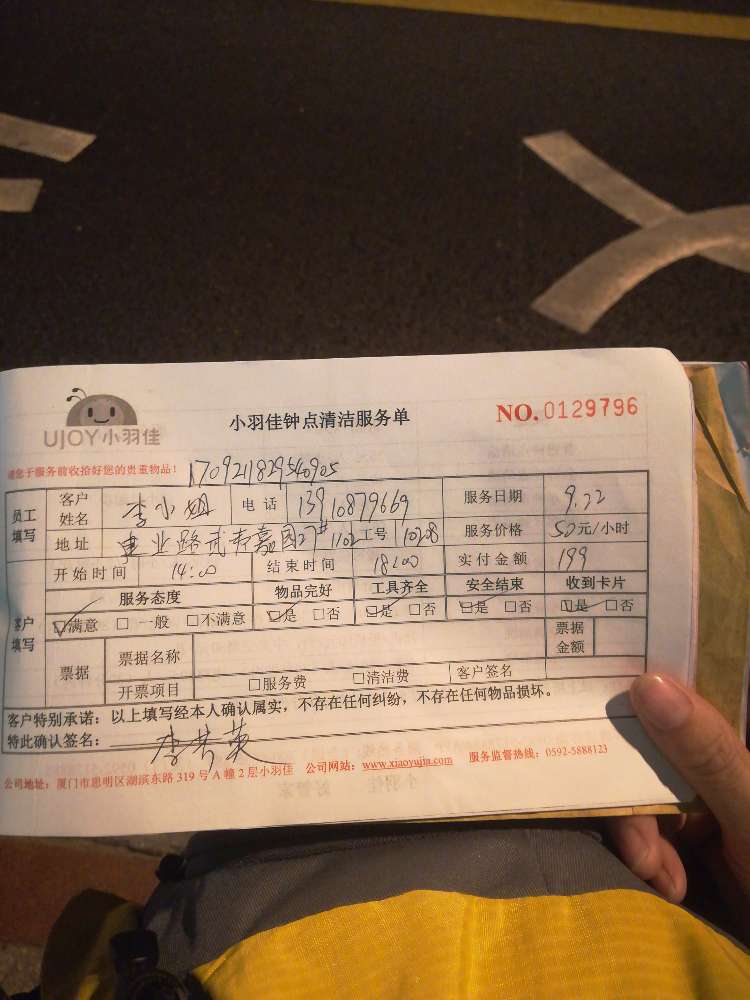 UJOY小羽佳
小羽佳钟点清洁服务单
NO.0129796
请您于服务前收拾好您的贵重物品!
1709211829540905
员工填写 客户姓名 李小姐 电话 13910879669 服务日期 9.22
地址 建业路武夷嘉园27# 1102 工号 10208 服务价格 50元/小时
开始时间 14:00 结束时间 18:00 实付金额 199
客户填写 服务态度 物品完好 工具齐全 安全结束 收到卡片
☑满意 □一般 □不满意 ☑是 □否 ☑是 □否 ☑是 □否 ☑是 □否
票据 票据名称 票据金额
开票项目 □服务费 □清洁费 客户签名
客户特别承诺:以上填写经本人确认属实,不存在任何纠纷,不存在任何物品损坏。
特此确认签名:
公司地址:厦门市思明区湖滨东路319号A幢2层小羽佳 公司网站:www.xiaoyujia.com 服务监督热线:0592-5888123